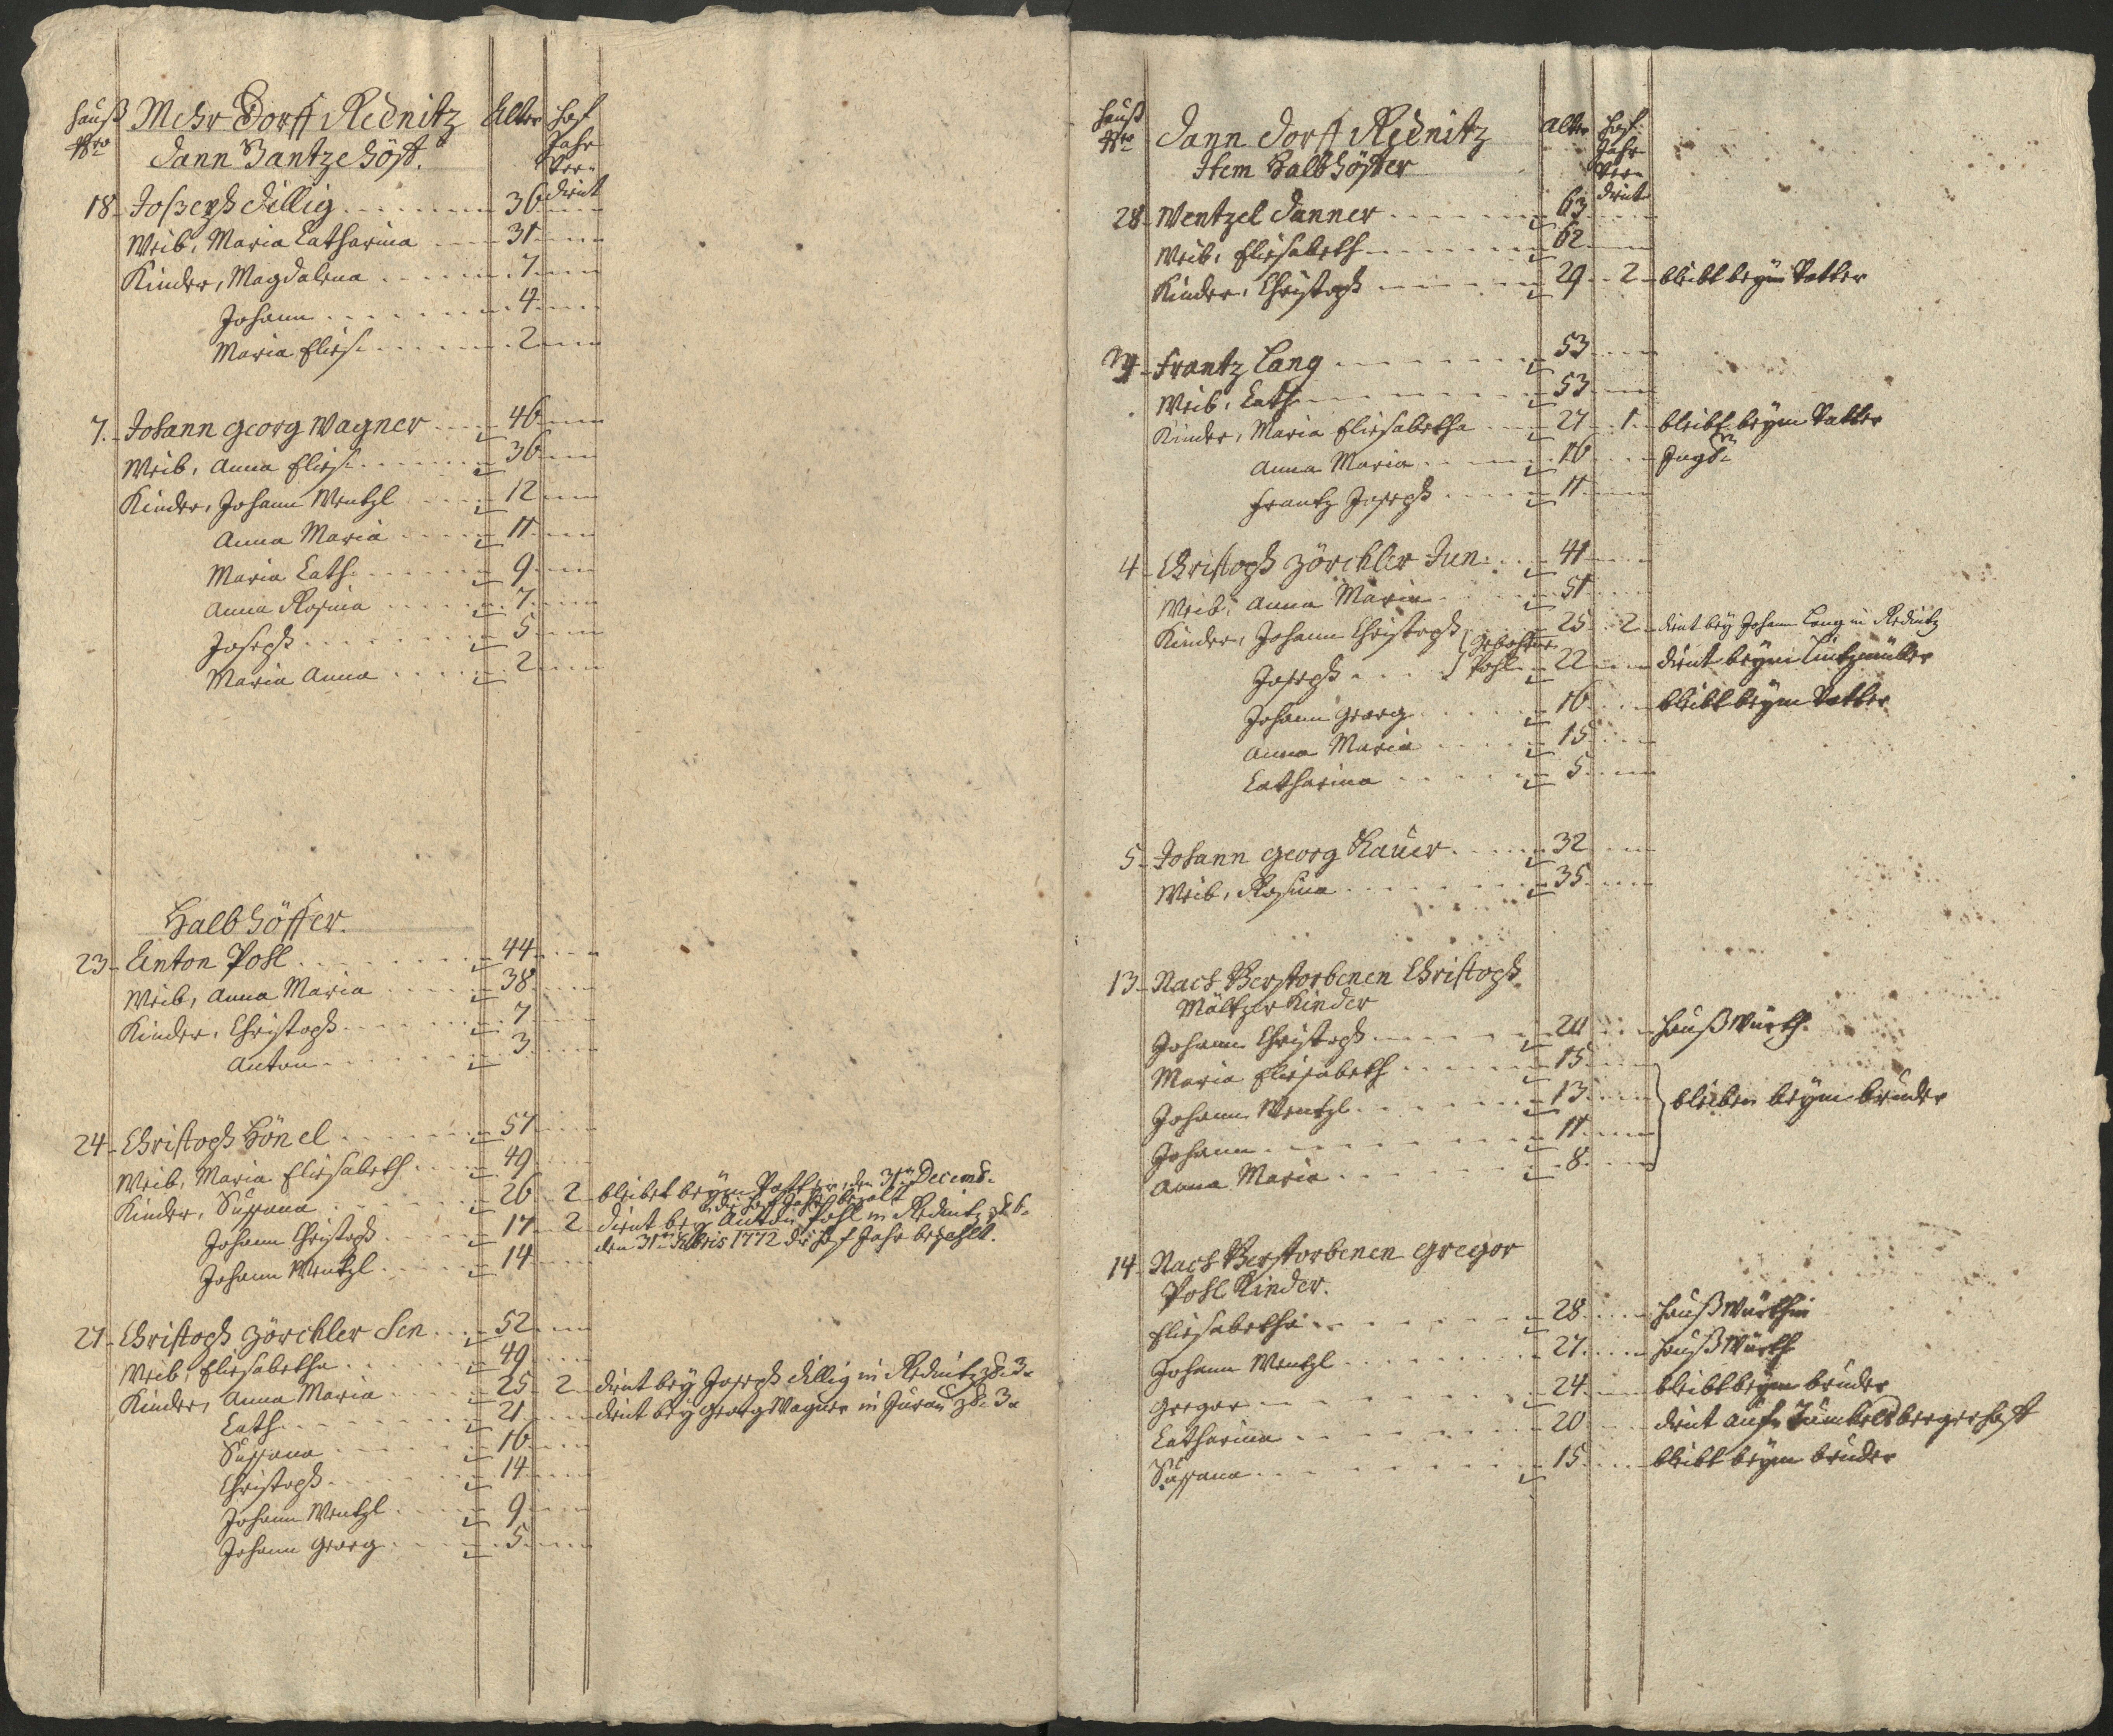 Hauß Nro Mehr Dorff Rednitz Alter Hof Jahr Ver= dient
Dann Gantze Höff.
18 Joseph Dillig 36
Weib, Maria Catharina 31
Kinder, Magdalena 7
Johann 4
Maria Elis. 2
7. Johann Georg Wagner 46
Weib, Anna Elis. 36
Kinder, Johann Wentzl 12
Anna Maria 11
Maria Cath. 9
Anna Rosina 7
Joseph 5
Maria Anna 2
Halb Höffer.
23 Anton Pohl 44
Weib, Anna Maria 38
Kinder, Christoph 7
Anton 3
24 Christoph Hönel 57
Weib, Maria Eliesabeth 49
Kinder, Susanna 26 2 bleibet beym Vatter, den 31ten Decemb.
die Hof Jahr bezalt
Johann Christoph 17 2 dient bey Anton Pohl in Rednitz
den 31ten Xbris 1772 die Hof Jahr bezahlt.
Johann Wentzl 14
27 Christoph Zörckler Sen 52
Weib, Eliesabetha 49
Kinder, Anna Maria 25 2 dient bey Joseph Dillig in Rednitz
Cath. 21 dient bey Georg Wagner in
Susanna 16
Christoph 14
Johann Wentzl 9
Johann Georg 5
Hauß Nro Dann Dorff Rednitz Alter Hof Jahr Ver= dient
Item Halb Höffer
28 Wentzel Danner 63
Weib, Eliesabeth 62
Kinder, Christoph 29 2 bleibt beym Vatter
Frantz Lang 53
Weib, Cath. 53
Kinder, Maria Eliesabetha 27 1 bleibt beym Vatter
Anna Maria 16
Frantz Joseph 11
4 Christoph Zörckler Jun. 41
Weib, Anna Maria 51
Kinder, Johann Christoph gebohrne 25 2 dient bey Johann Lang in Rednitz
Joseph Pohl 22 dient beym
Johann Georg 16 bleibt beym Vatter
Anna Maria 15
Catharina 5
5 Johann Georg Kauer 32
Weib, Rosina 35
13 Nach Verstorbenen Christoph
Mältzer Kinder
Johann Christoph 20 Hauß Würth
Maria Eliesabeth 15
Johann Wentzl 13 bleiben beym bruder
Johann 11
Anna Maria 8
14 Nach Verstorbenen Gregor
Pohl Kinder.
Eliesabetha 28 Hauß Würthin
Johann Wentzl 27 Hauß Würth
Gregor 24 bleibt beym bruder
Catharina 20 dient auf
Susanna 15 bleibt beym bruder